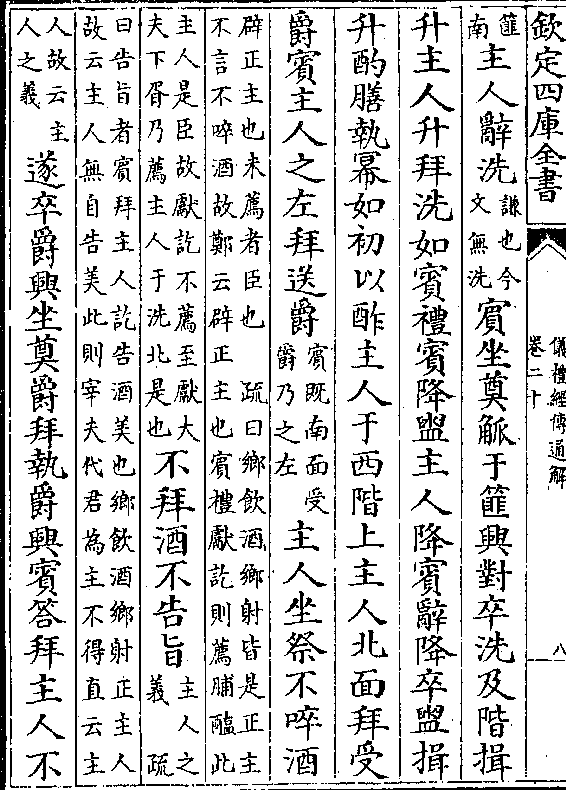 欽定四庫全書
儀禮經傳通解
卷二十
八
篚
南
主人辭洗
謙也今
文無洗
賓坐奠觚于篚興對卒洗及階揖
升主人升拜洗如賓禮賓降盥主人降賓辭降卒盥揖
升酌膳執冪如初以酢主人于西階上主人北面拜受
爵賓主人之左拜送爵
賓既南面受
爵乃之左
主人坐祭不啐酒
辟正主也未薦者臣也 疏曰鄉飲酒鄉射皆是正主
不言不啐酒故鄭云辟正主也賓禮獻訖則薦脯醢此
主人是臣故獻訖不薦至獻大
夫下胥乃薦主人于洗北是也
不拜酒不告旨
主人之
義 疏
曰告旨者賓拜主人訖告酒美也鄉飲酒鄉射正主人
故云主人無自告美此則宰夫代君為主不得直云主
人故云主
人之義
遂卒爵興坐奠爵拜執爵興賓答拜主人不